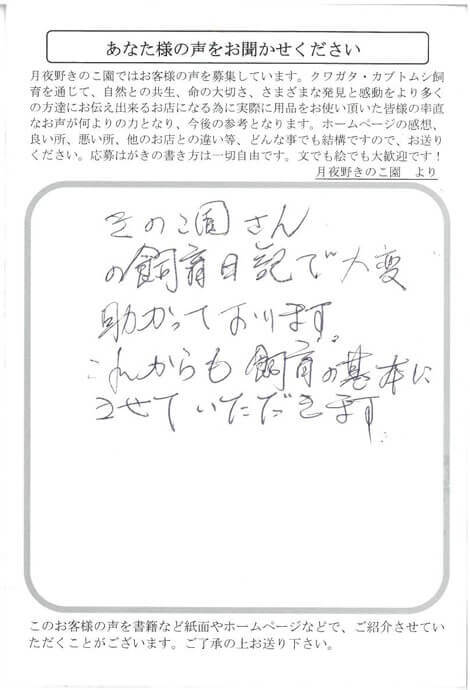 あなた様の声をお聞かせください
月夜野きのこ園ではお客様の声を募集しています。クワガタ・カブトムシ飼
育を通じて、自然との共生、命の大切さ、さまざまな発見と感動をより多く
の方達にお伝え出来るお店になる為に実際に用品をお使い頂いた皆様の率直
なお声が何よりの力となり、今後の参考となります。ホームページの感想、
良い所、悪い所、他のお店との違い等、どんな事でも結構ですので、お送り
ください。応募はがきの書き方は一切自由です。文でも絵でも大歓迎です！
月夜野きのこ園　より
きのこ園さん
の飼育日記で大変
助かっております。
これからも飼育の基本に
させていただきます。
このお客様の声を書籍など紙面やホームページなどで、ご紹介させてい
ただくことがございます。ご了承の上お送り下さい。